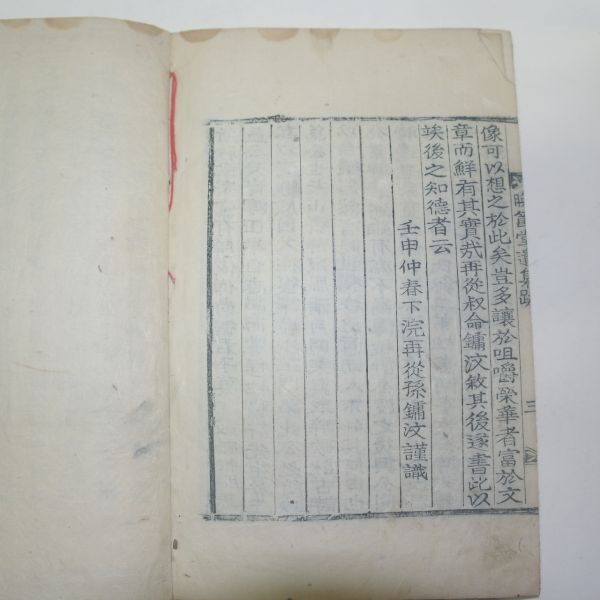 像可以想之於此矣豈多讓於咀嚼榮華者富於文
章而鮮有其實哉再從叔命鏞汶敘其後遂書此以
竢後之知德者云
壬申仲春下浣再從孫鏞汶謹識
晚節堂遺集跋
三